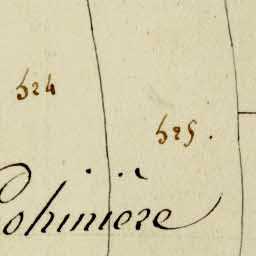 524
525.
ohinière